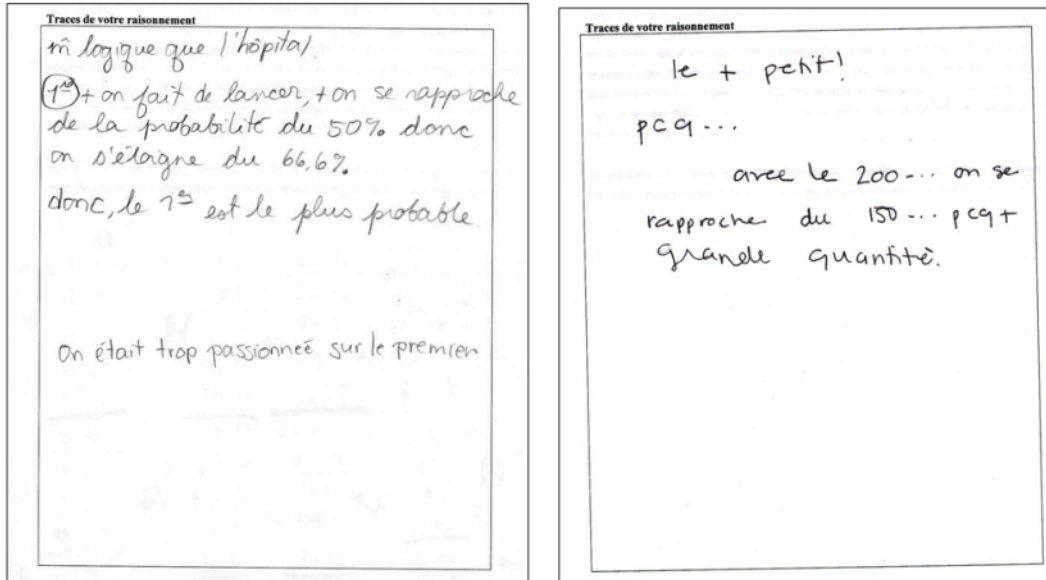 Traces de votre raisonnement
m̂ logique que l'hôpital.
1er + on fait de lancer, + on se rapproche
de la probabilité du 50% donc
on s'éloigne du 66,6%
donc, le 1er est le plus probable
On était trop passionneé sur le premier
Traces de votre raisonnement
le + petit!
pcq...
avec le 200... on se
rapproche du 150... pcq +
grande quantité.